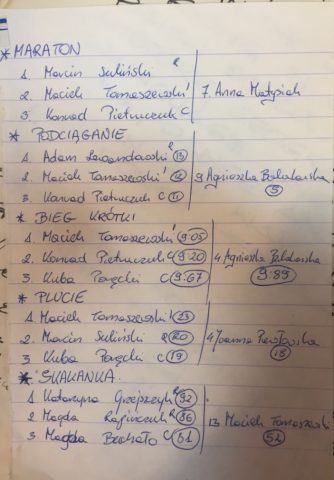 * MARATON
1. Marcin Suliński R
2. Maciek Tomaszewski
7. Anna Matysiak
3. Konrad Pietruczuk C
* PODCIĄGANIE
1. Adam Lewandowski R 13
2. Maciek Tomaszewski 12
9. Agnieszka
5
3. Konrad Pietruczuk C 11
* BIEG KRÓTKI
1. Maciek Tomaszewski 9:05
2. Konrad Pietruczuk 9:20
4. Agnieszka
9:89
3. Kuba C 9:67
* PLUCIE
1. Maciek Tomaszewski 23
2. Marcin Suliński R 20
4. Joanna
18
3. Kuba C 19
* SKAKANKA
1. Katarzyna Grzejszczyk R 92
2. Magda R 86
13 Maciek Tomaszewski
52
3. Magda C 61